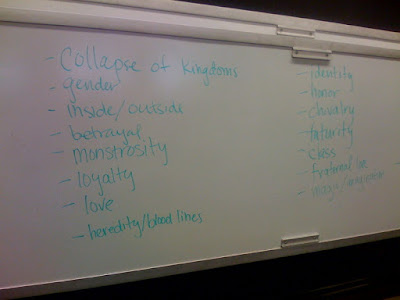 - Collapse of Kingdoms
- gender
- inside/outside
- betrayal
- monstrosity
- loyalty
- love
- heredity/blood lines
- identity
- honor
- chivalry
- futurity
- class
- fraternal love